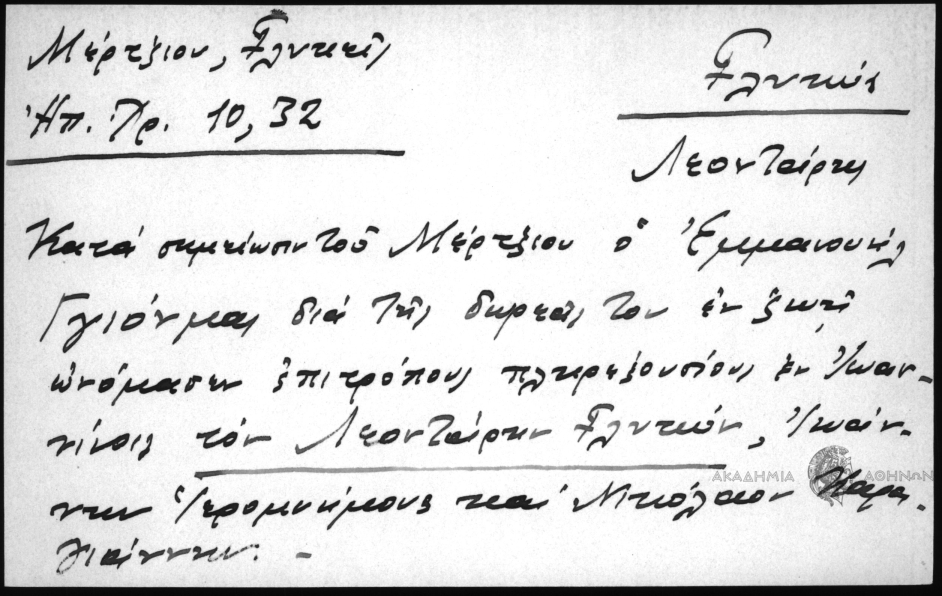 Μέρτζιου, Γλυκεῖς
Ἠπ. Χρ. 10, 32
Γλυκύς
Λεοντάρης
Κατά σημείωσιν τοῦ Μέρτζιου ὁ Ἐμμανουήλ
Γκιόνμας διά τῆς δωρεᾶς του ἐν ζωῇ
ὠνόμασεν ἐπιτρόπους πληρεξουσίους ἐν Ἰωαν-
νίνοις τόν Λεοντάρην Γλυκύν, Ἰωάν-
νην Ἱερομνήμονα καί Νικόλαον Καρα-
γιάννην. –
ΑΚΑΔΗΜΙΑ ΑΘΗΝΩΝ